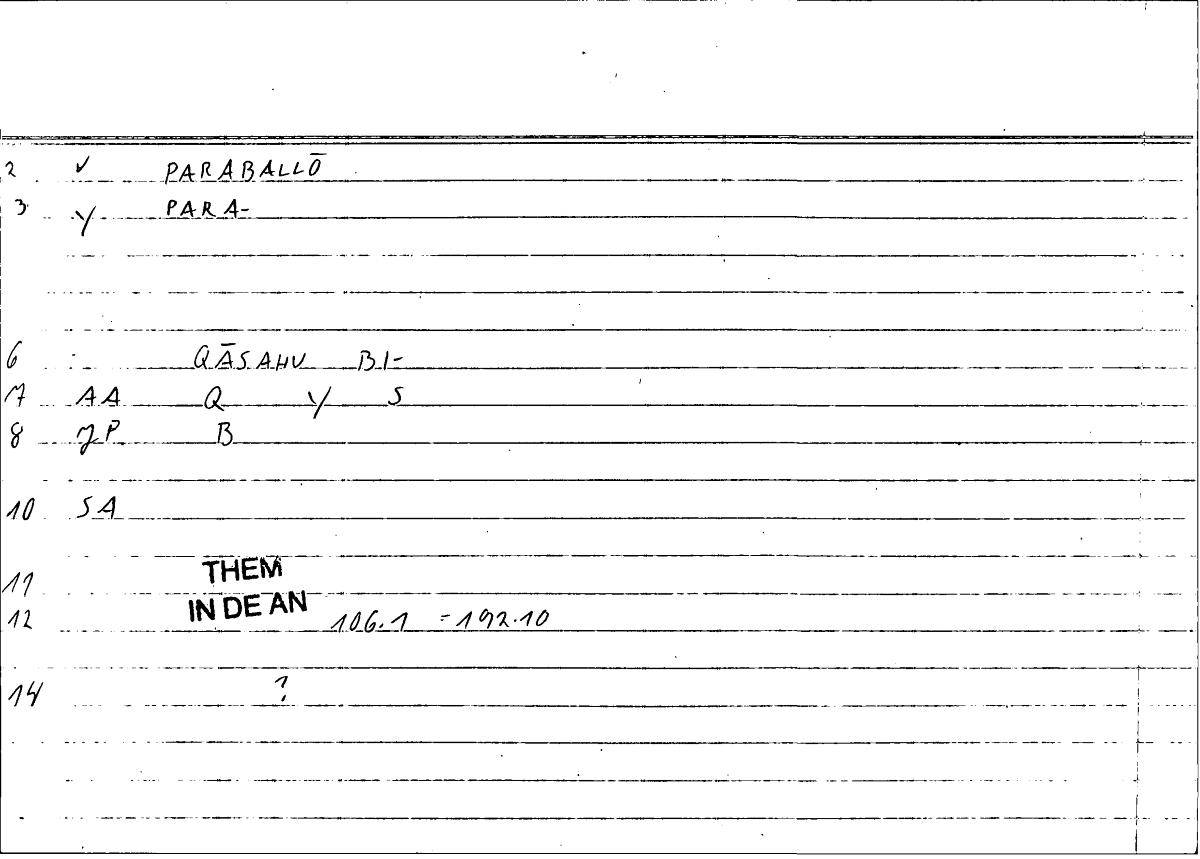 2 ✓ PARABALLŌ
3 Y PARA-
6 : QĀSAHU BI-
7 AA Q Y S
8 JP B
10 SA
THEM
11
IN DE AN
12 106.1 = 192.10
14 ?